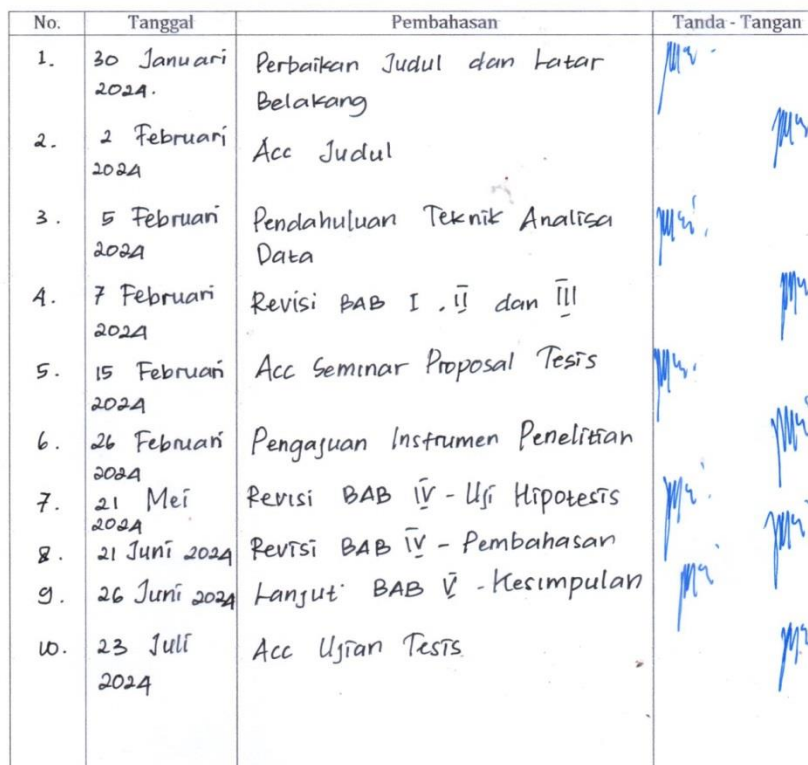 No. Tanggal Pembahasan Tanda - Tangan
1. 30 Januari Perbaikan Judul dan Latar
2024. Belakang
2. 2 Februari Acc Judul
2024
3. 5 Februari Pendahuluan Teknik Analisa
2024 Data
4. 7 Februari Revisi BAB I , II dan III
2024
5. 15 Februari Acc Seminar Proposal Tesis
2024
6. 26 Februari Pengajuan Instrumen Penelitian
2024
7. 21 Mei Revisi BAB IV - Uji Hipotesis
2024
8. 21 Juni 2024 Revisi BAB IV - Pembahasan
9. 26 Juni 2024 Lanjut BAB V - Kesimpulan
10. 23 Juli Acc Ujian Tesis
2024